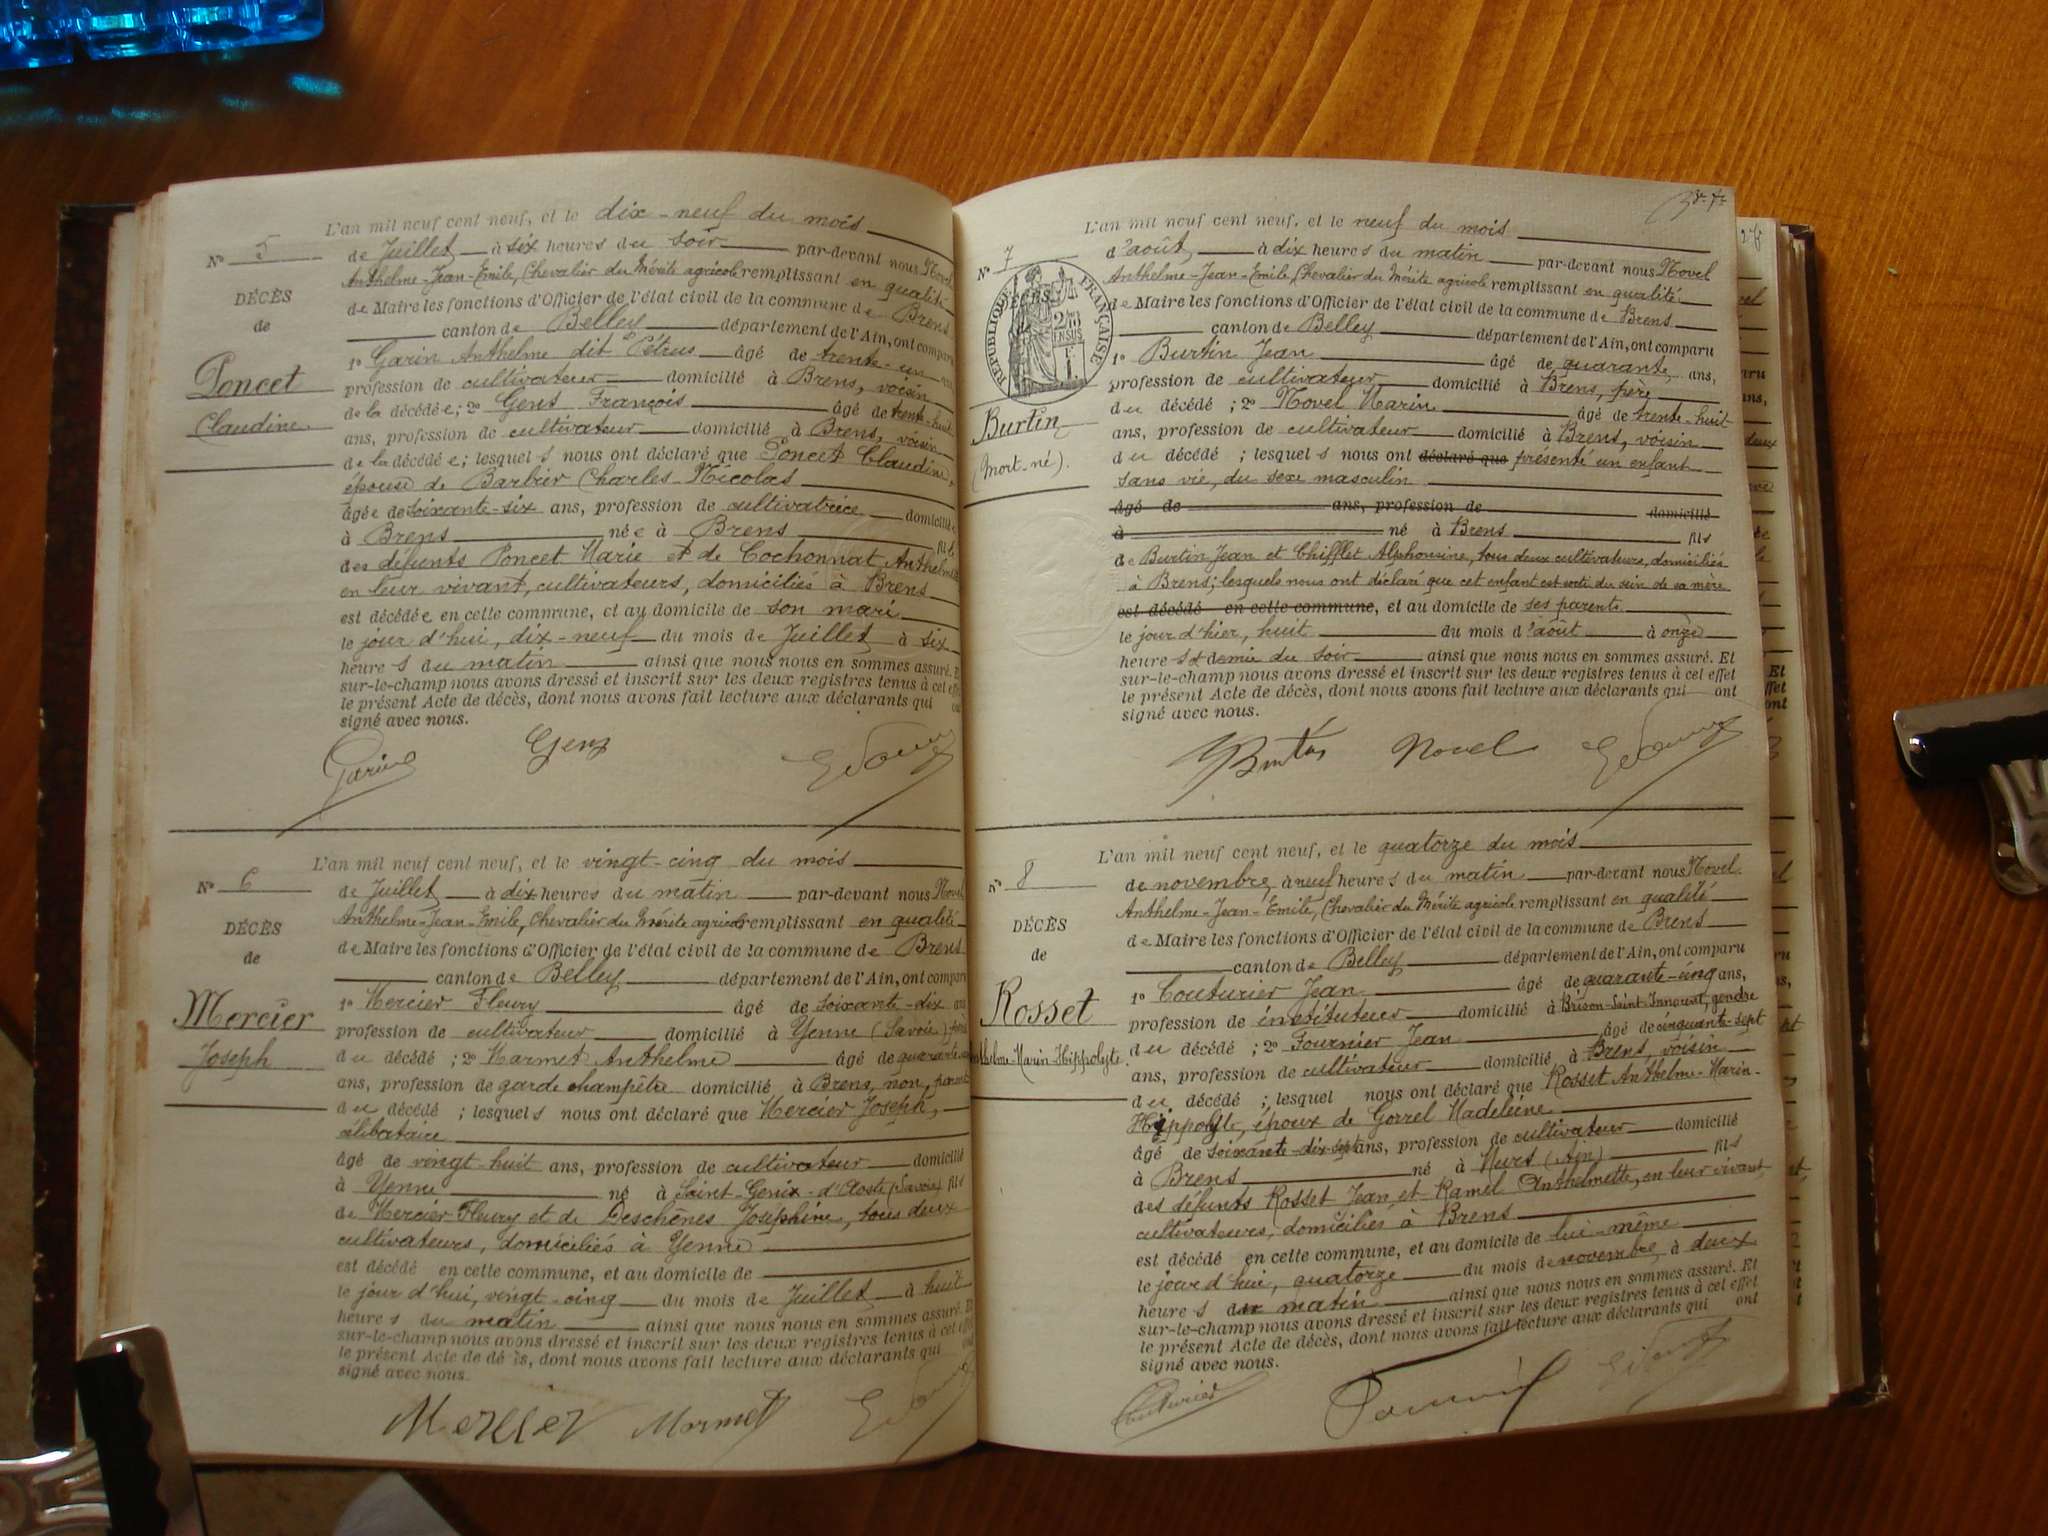 L'an mil neuf cent neuf, et le dix-neuf du mois
N° 5
de Juillet à six heures du soir par-devant nous Novel
Anthelme-Jean-Emile, Chevalier du Mérite agricole remplissant en qualité
DÉCÈS
de Maire les fonctions d'Officier de l'état civil de la commune de Brens
de
canton de Belley département de l'Ain, ont comparu
1° Garin Anthelme dit Pétrus âgé de trente-un ans
Poncet
profession de cultivateur domicilié à Brens, voisin
Claudine
de la décédée; 2° Gens François âgé de trente-huit
ans, profession de cultivateur domicilié à Brens, voisin
de la décédée; lesquels nous ont déclaré que Poncet Claudine,
épouse de Barbier Charles-Nicolas
âgée de soixante-six ans, profession de cultivatrice domiciliée
à Brens née à Brens fille
des défunts Poncet Marie et de Cochonnat Anthelme
en leur vivant, cultivateurs, domiciliés à Brens
est décédée en cette commune, et au domicile de son mari
le jour d'hui, dix-neuf du mois de Juillet à six
heures du matin ainsi que nous nous en sommes assuré. Et
sur-le-champ nous avons dressé et inscrit sur les deux registres tenus à cet effet
le présent Acte de décès, dont nous avons fait lecture aux déclarants qui ont
signé avec nous.
Garin Gens
L'an mil neuf cent neuf, et le vingt-cinq du mois
N° 6
de Juillet à dix heures du matin par-devant nous Novel
Anthelme-Jean-Emile, Chevalier du Mérite agricole remplissant en qualité
DÉCÈS
de Maire les fonctions d'Officier de l'état civil de la commune de Brens
de
canton de Belley département de l'Ain, ont comparu
1° Mercier Fleury âgé de soixante-dix ans
Mercier
profession de cultivateur domicilié à Yenne (Savoie) père
Joseph
du décédé ; 2° Marmet Anthelme âgé de quarante
ans, profession de garde champêtre domicilié à Brens, non parent
du décédé ; lesquels nous ont déclaré que Mercier Joseph,
célibataire
âgé de vingt-huit ans, profession de cultivateur domicilié
à Yenne né à Saint-Genix-d'Aoste (Savoie) fils
de Mercier Fleury et de Deschênes Joséphine, tous deux
cultivateurs, domiciliés à Yenne
est décédé en cette commune, et au domicile de
le jour d'hui, vingt-cinq du mois de Juillet à huit
heures du matin ainsi que nous nous en sommes assuré. Et
sur-le-champ nous avons dressé et inscrit sur les deux registres tenus à cet effet
le présent Acte de décès, dont nous avons fait lecture aux déclarants qui ont
signé avec nous.
Mercier Marmet
L'an mil neuf cent neuf, et le neuf du mois
N° 7
d'août à dix heures du matin par-devant nous Novel
Anthelme-Jean-Emile, Chevalier du Mérite agricole remplissant en qualité
de Maire les fonctions d'Officier de l'état civil de la commune de Brens
RÉPUBLIQUE FRANÇAISE
canton de Belley département de l'Ain, ont comparu
1° Burtin Jean âgé de quarante ans,
profession de cultivateur domicilié à Brens, père
Burtin
du décédé ; 2° Novel Marin âgé de trente-huit
(mort-né).
ans, profession de cultivateur domicilié à Brens, voisin
du décédé ; lesquels nous ont déclaré que présenté un enfant
sans vie, du sexe masculin
âgé de ans, profession de domicilié
à né à Brens fils
de Burtin Jean et Chifflet Alphonsine, tous deux cultivateurs, domiciliés
à Brens; lesquels nous ont déclaré que cet enfant est sorti du sein de sa mère
est décédé en cette commune, et au domicile de ses parents
le jour d'hier, huit du mois d'août à onze
heures & demie du soir ainsi que nous nous en sommes assuré. Et
sur-le-champ nous avons dressé et inscrit sur les deux registres tenus à cet effet
le présent Acte de décès, dont nous avons fait lecture aux déclarants qui ont
signé avec nous.
Burtin Novel
L'an mil neuf cent neuf, et le quatorze du mois
N° 8
de novembre à neuf heures du matin par-devant nous Novel
Anthelme-Jean-Emile, Chevalier du Mérite agricole remplissant en qualité
DÉCÈS
de Maire les fonctions d'Officier de l'état civil de la commune de Brens
de
canton de Belley département de l'Ain, ont comparu
1° Couturier Jean âgé de quarante-cinq ans,
Rosset
profession de instituteur domicilié à Brison-Saint-Innocent, gendre
Anthelme-Marin-Hippolyte
du décédé ; 2° Fournier Jean âgé de cinquante-sept
ans, profession de cultivateur domicilié à Brens, voisin
du décédé ; lesquel nous ont déclaré que Rosset Anthelme-Marin-
Hippolyte, époux de Gorrel Madeleine
âgé de soixante-dix-sept ans, profession de cultivateur domicilié
à Brens né à Murs (Ain) fils
des défunts Rosset Jean et Ramel Anthelmette, en leur vivant,
cultivateurs, domiciliés à Brens
est décédé en cette commune, et au domicile de lui-même
le jour d'hui, quatorze du mois de novembre à deux
heures du matin ainsi que nous nous en sommes assuré. Et
sur-le-champ nous avons dressé et inscrit sur les deux registres tenus à cet effet
le présent Acte de décès, dont nous avons fait lecture aux déclarants qui ont
signé avec nous.
Couturier Fournier